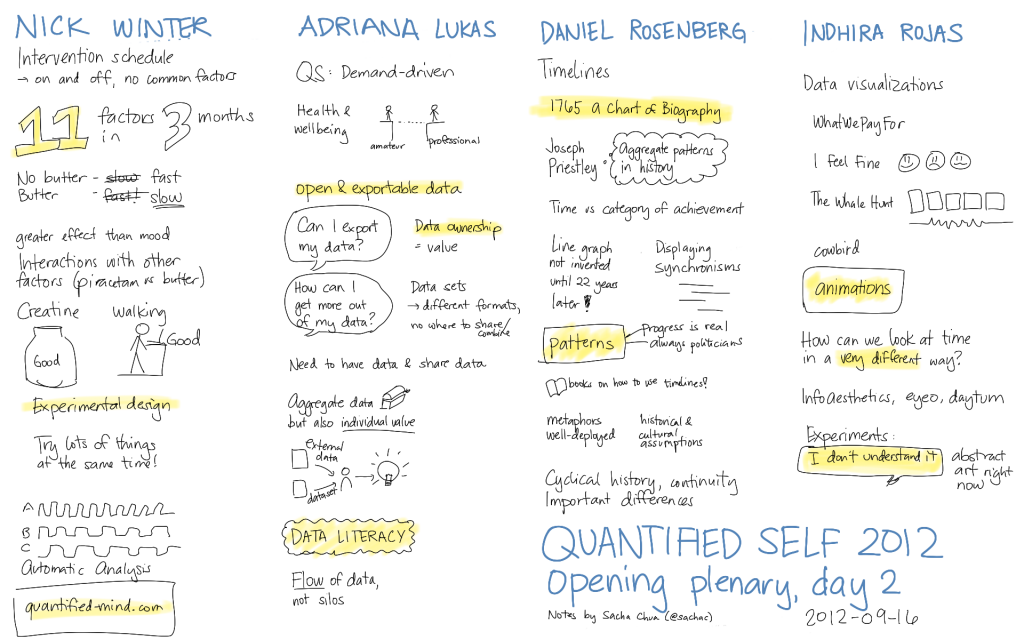 NICK WINTER
Intervention schedule
→ on and off, no common factors
11 factors in 3 months
No butter - slow fast
Butter - fast! slow
greater effect than mood
Interactions with other
factors (piracetam vs butter)
Creatine
Walking
Good
Good
Experimental design
Try lots of things
at the same time!
A
B
C
Automatic Analysis
quantified-mind.com
ADRIANA LUKAS
QS: Demand-driven
Health &
wellbeing
amateur
professional
open & exportable data
Can I export
my data?
Data ownership
= value
How can I
get more out
of my data?
Data sets
→ different formats,
no where to share/
combine
Need to have data & share data
Aggregate data
but also individual value
external
data
dataset
DATA LITERACY
Flow of data,
not silos
DANIEL ROSENBERG
Timelines
1765 A Chart of Biography
Joseph
Priestley
Aggregate patterns
in history
Time vs category of achievement
Line graph
not invented
until 22 years
later!
Displaying
Synchronisms
patterns
progress is real
always politicians
books on how to use timelines!
metaphors
well-deployed
historical &
cultural
assumptions
Cyclical history, continuity
Important differences
INDHIRA ROJAS
Data visualizations
WhatWePayFor
I feel fine
The Whale Hunt
cowbird
animations
How can we look at time
in a very different way?
Infoaesthetics, eyeo, daytum
Experiments:
I don't understand it
abstract
art right
now
QUANTIFIED SELF 2012
Opening plenary, day 2
Notes by Sacha Chua (@sachac)
2012-09-16